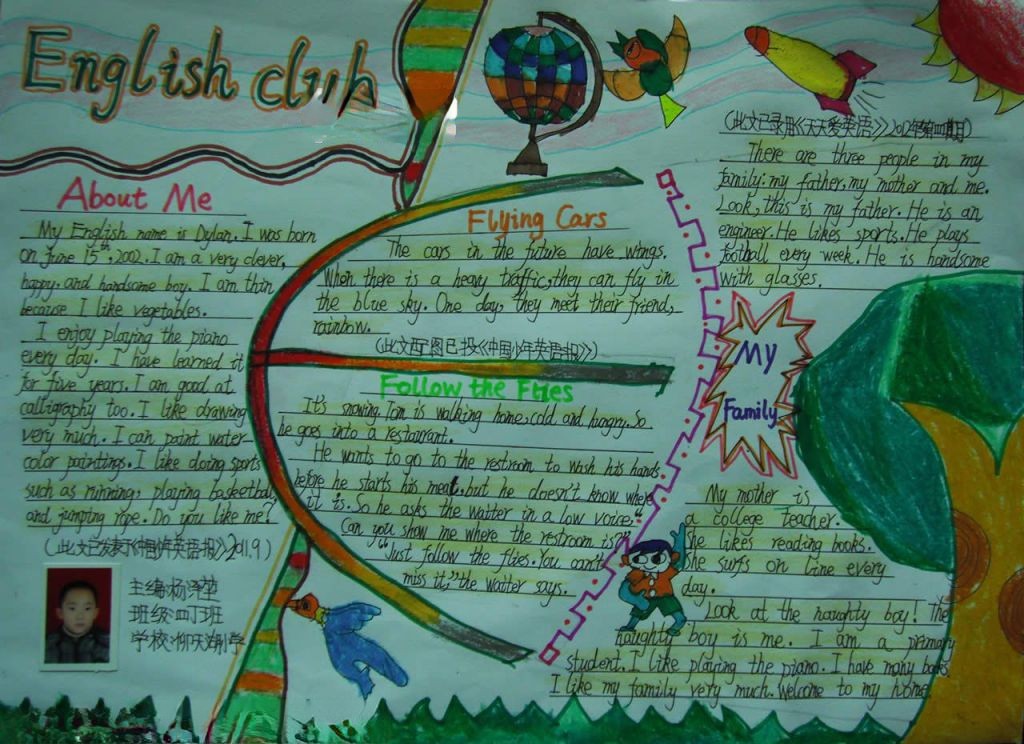 English club
About Me
My English name is Dylan. I was born
on June 15th, 2002. I am a very clever,
happy and handsome boy. I am thin
because I like vegetables.
I enjoy playing the piano
every day. I have learned it
for five years. I am good at
calligraphy too. I like drawing
very much. I can paint water-
color paintings. I like doing sports
such as running, playing basketball
and jumping rope. Do you like me?
(此文已发表于《中国少年英语报》2011.9)
主编:杨泽堃
班级:四丁班
学校:
Flying Cars
The cars in the future have wings.
When there is a heavy traffic, they can fly in
the blue sky. One day, they meet their friend,
rainbow.
(此文配图已投《中国少年英语报》)
Follow the Flies
It's snowing. Tom is walking home, cold and hungry. So
he goes into a restaurant.
He wants to go to the restroom to wash his hands
before he starts his meat. but he doesn't know where
it is. So he asks the waiter in a low voice, "
Can you show me where the restroom is?"
"Just follow the flies. You can't
miss it," the waiter says.
(此文已录用《天天爱英语》2012年第四期)
There are three people in my
family: my father, my mother and me.
Look, this is my father. He is an
engineer. He likes sports. He plays
football every week. He is handsome
with glasses.
My
Family
My mother is
a college teacher.
She likes reading books.
She surfs on line every
day.
Look at the naughty boy! The
naughty boy is me. I am a primary
student. I like playing the piano. I have many books.
I like my family very much. Welcome to my home.